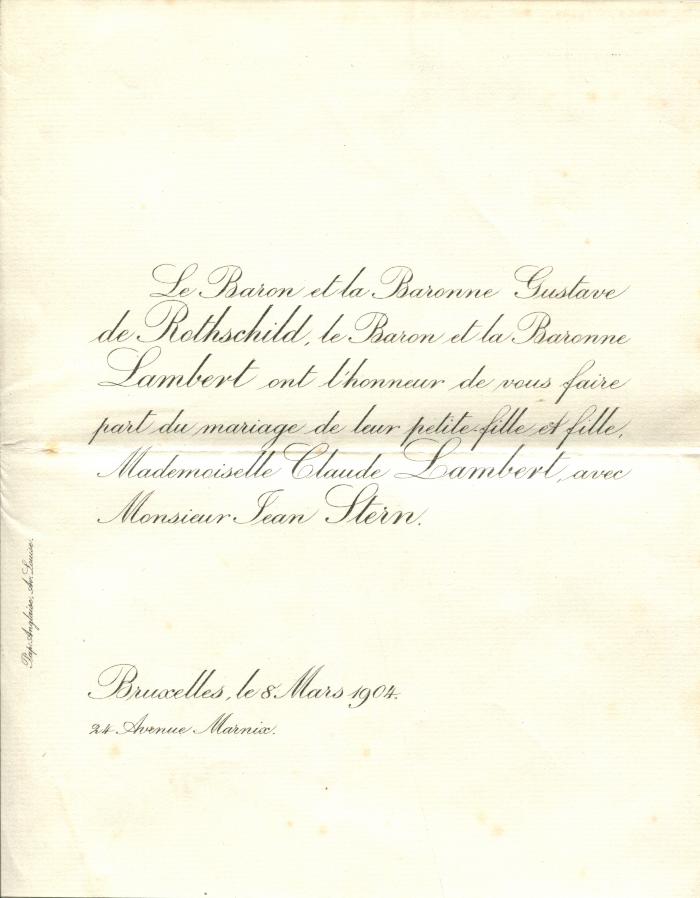 Le Baron et la Baronne Gustave
de Rothschild, le Baron et la Baronne
Lambert ont l'honneur de vous faire
part du mariage de leur petite-fille et fille,
Mademoiselle Claude Lambert, avec
Monsieur Jean Stern.
Pap. Anglaise, Av. Louise.
Bruxelles, le 8 Mars 1904.
24 Avenue Marnix.